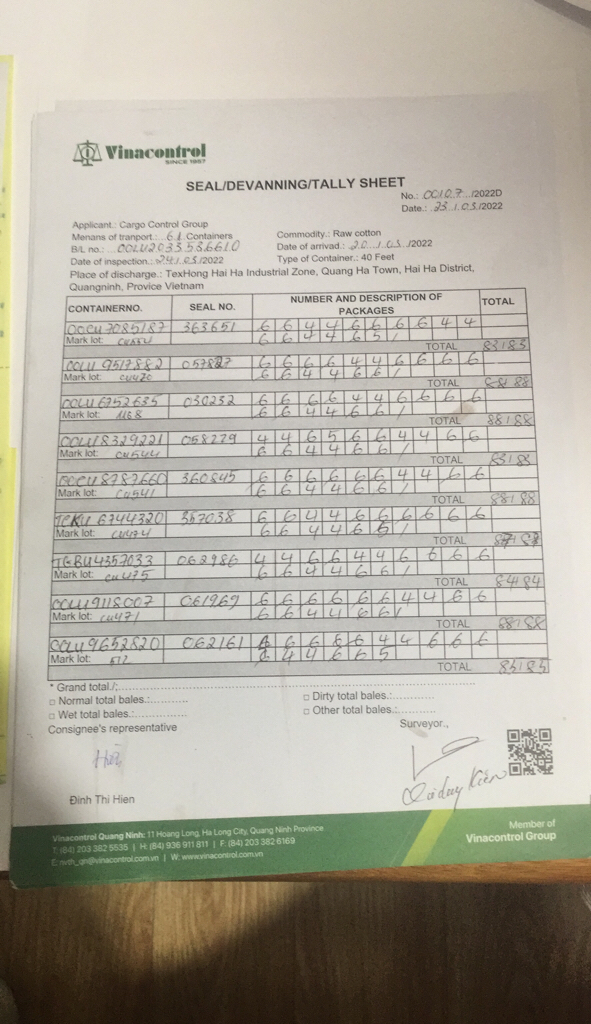 Vinacontrol
SINCE 1957
SEAL/DEVANNING/TALLY SHEET
No.: 00107 /2022D
Date.: 23/03/2022
Applicant.: Cargo Control Group
Menans of tranport.: 61 Containers
Commodity.: Raw cotton
B/L no.: OOLU2033536610
Date of arrivad.: 20/03/2022
Date of inspection.: 24/03/2022
Type of Container.: 40 Feet
Place of discharge.: TexHong Hai Ha Industrial Zone, Quang Ha Town, Hai Ha District,
Quangninh, Provice Vietnam
CONTAINERNO. SEAL NO. NUMBER AND DESCRIPTION OF PACKAGES TOTAL
OOCU7085187 363651 6 6 4 4 6 6 6 6 4 4
Mark lot: 6 6 4 4 6 5 /
TOTAL 83/83
OOLU9517882 6 6 6 6 4 4 6 6 6 6
Mark lot: CU420 6 6 4 4 6 6 /
TOTAL 88/88
OOLU6752635 030232 6 6 6 6 4 4 6 6 6 6
Mark lot: 1168 6 6 4 4 6 6 /
TOTAL 88/88
OOLU8329221 058279 4 4 6 5 6 6 4 4 6 6
Mark lot: CU544 6 6 4 4 6 6 /
TOTAL 83/83
OOCU8787660 360845 6 6 6 6 6 6 4 4 6 6
Mark lot: CU541 6 6 4 4 6 6 /
TOTAL 88/88
TCKU 6744320 357038 6 6 4 4 6 6 6 6 6 6
Mark lot: CU474 6 6 4 4 6 5 /
TOTAL 87/87
TGBU4357033 062986 4 4 6 6 4 4 6 6 6 6
Mark lot: CU475 6 6 4 4 6 6 /
TOTAL 84/84
OOLU9118007 061969 6 6 6 6 6 6 4 4 6 6
Mark lot: CU471 6 6 4 4 6 6 /
TOTAL 88/88
OOLU9652820 062161 6 6 6 6 6 4 4 6 6 6
Mark lot: 572 6 4 4 6 6 5
TOTAL 83/83
* Grand total./:
□ Normal total bales.:
□ Dirty total bales.:
□ Wet total bales.:
□ Other total bales.:
Consignee's representative
Surveyor.,
Đinh Thi Hien
Vinacontrol Quang Ninh: 11 Hoang Long, Ha Long City, Quang Ninh Province
T: (84) 203 382 5535 | H: (84) 936 911 811 | F: (84) 203 382 6169
E: nvth_qn@vinacontrol.com.vn | W: www.vinacontrol.com.vn
Member of
Vinacontrol Group